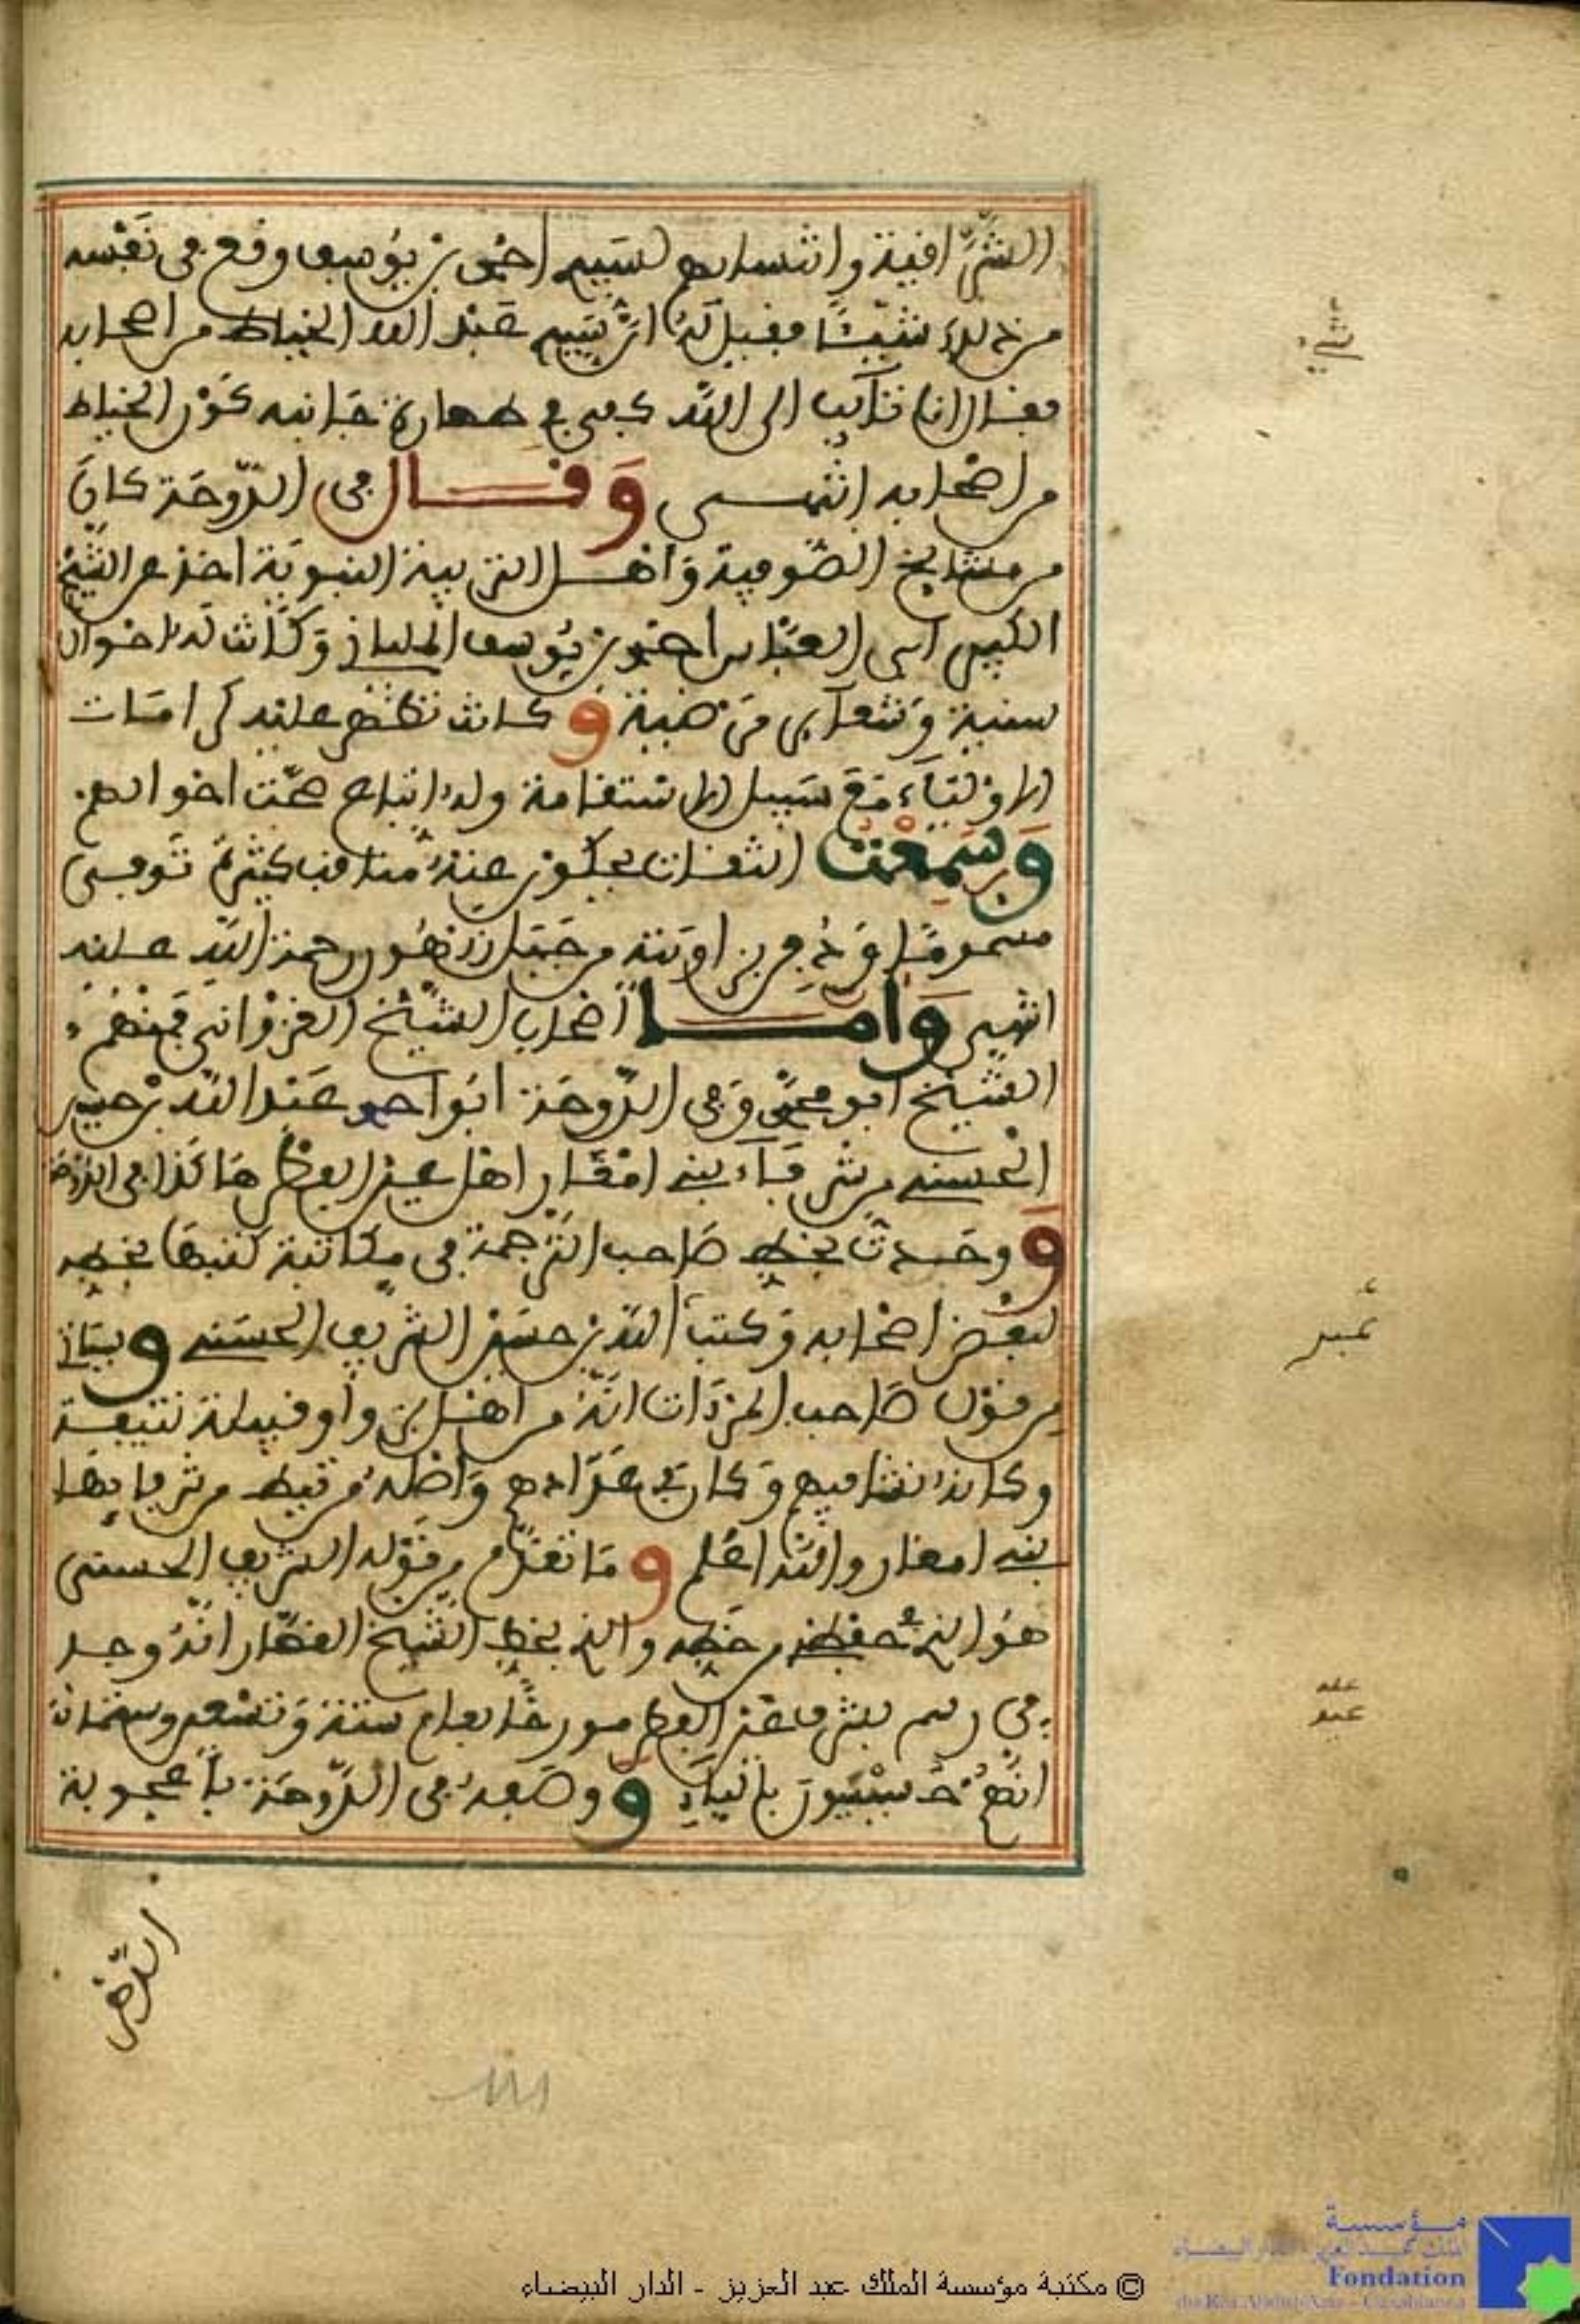 الشراقية وانتسابهم لسيدي احمد بن يوسف وقع في نفسه
من ذلك شيئا فقيل له ان سيدي عبد الله الخياط من اصحابه
فقال انا تائب الى الله كفى في طهارة جانبه كون الخياط
من اصحابه انتهى وقال في الدوحة كان
من مشايخ الصوفية واهل التربية النبوية اخذ عن الشيخ
الكبير ابي العباس احمد بن يوسف الملياني وكانت له احوال
سنية وشعائر مرضية وكانت تظهر عليه كرامات
الاولياء مع سبيل الاستقامة وله اتباع صحت احوالهم
وسمعت الثقات يحكون عنه مناقب كثيرة توفي
مسموما ودفن بزاويته من جبل زرهون رحمة الله عليه
انتهى واما اصحاب الشيخ الغزواني فمنهم
الشيخ ابو محمد وفي الدوحة ابو احمد عبد الله بن حسين
الحسني من شرفاء بني امغار اهل عين الفطر هاكذا في الدوحة
ووجدت بخط صاحب الترجمة في مكاتبة كتبها بخطه
لبعض اصحابه وكتب الله بن حسين الشريف الحسني وياتي
من قول صاحب المرءات انه من اهل بزو او قبيلة نتيفة
وكانه نشا فيهم وكان في عدادهم واصله من تيط من شرفايها
بني امغار والله اعلم وما تقدم من قوله الشريف الحسني
هو الذي حفظه من خطه والذي بخط الشيخ القصار انه وجد
في رسم بشرفا عين الفطر مورخا بعام ستة وتسعين وستمائة
انهم حسنيون بالياء ووصفه في الدوحة باعجوبة
الدهر
شيء
عبد
© مكتبة مؤسسة الملك عبد العزيز - الدار البيضاء
مؤسسة
الملك عبد العزيز الدار البيضاء
Fondation
du Roi Abdul-Aziz - Casablanca